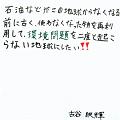 石油などがこの地球からなくなる
前に古く、使わなくなった物を再利
用して、環境問題を二度と起こ
らない地球にしたい!!
古谷